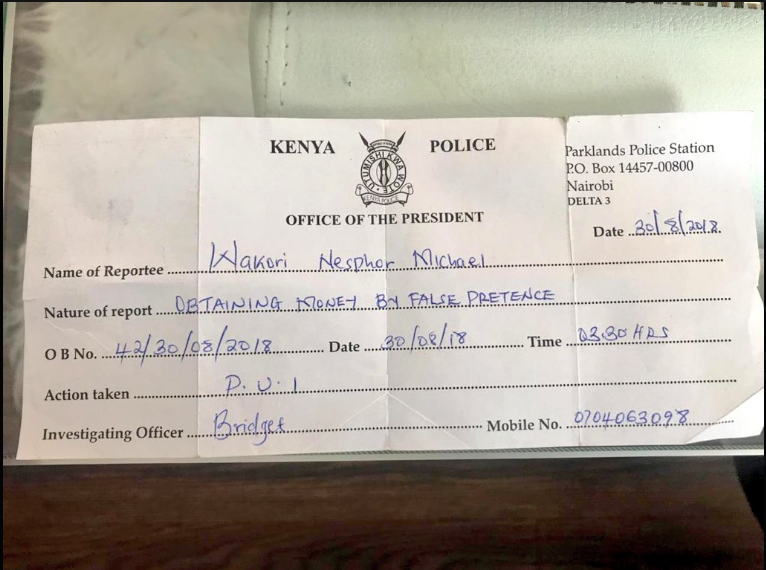 KENYA POLICE
UTUMISHI KWA WOTE
KENYA POLICE
OFFICE OF THE PRESIDENT
Parklands Police Station
P.O. Box 14457-00800
Nairobi
DELTA 3
Date 30/8/2018
Name of Reportee Wakori Nesphor Michael
Nature of report OBTAINING MONEY BY FALSE PRETENCE
O B No. 42/30/08/2018 Date 30/08/18 Time 0330 HRS
Action taken P.U.I
Investigating Officer Bridget Mobile No. 0704063098